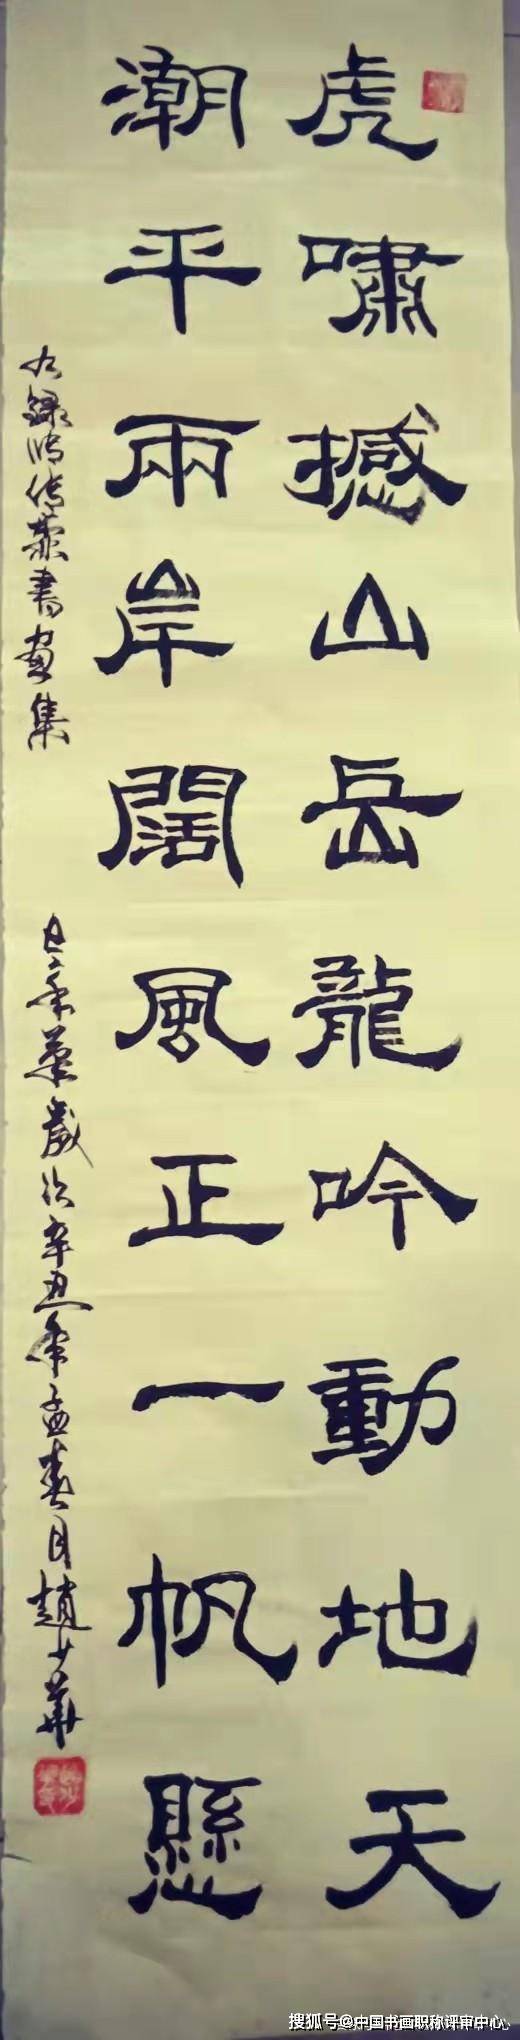 虎啸撼山岳龍吟動地天
潮平兩岸闊風正一帆懸
右録 书画集
歲次辛丑年孟春月趙少華
搜狐号@中国书画职称评审中心